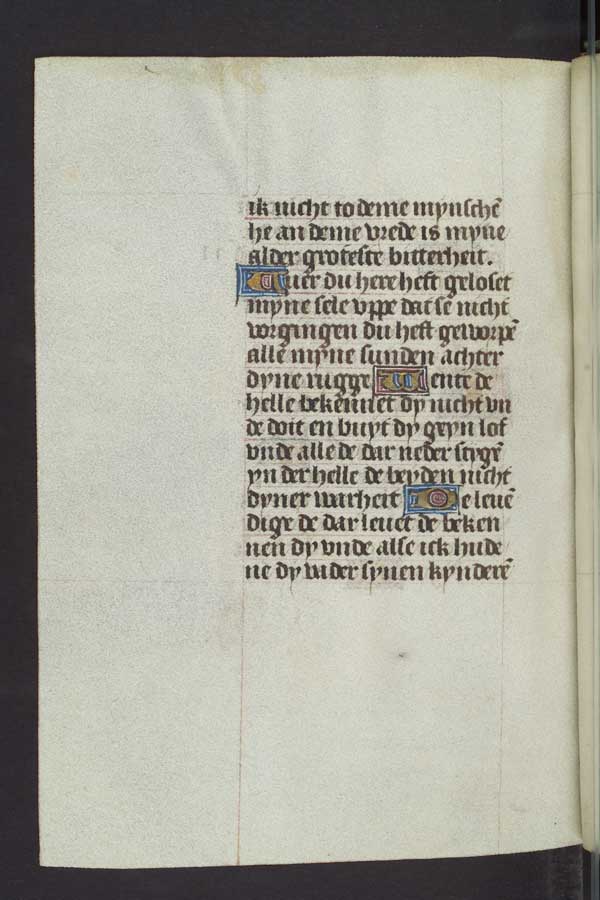 ik nicht to deme mynschē
he an deme vrede is myne
alder groteste bitterheit.
Auer du here heft geloset
myne sele vppe dat se nicht
vorgingen du heft geworpē
alle myne sunden achter
dyne rugge Wente de
helle bekennet dy nicht vn
de doit en buyt dy geyn lof
vnde alle de dar neder stygē
yn der helle de beyden nicht
dyner warheit De leuē
dige de dar leuet de beken
nen dy vnde alse ick hude
ne dy vader synen kynderē